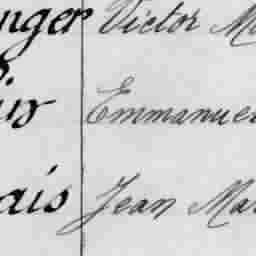 nger Victor Ma
is Emmanuel
ais Jean Mar